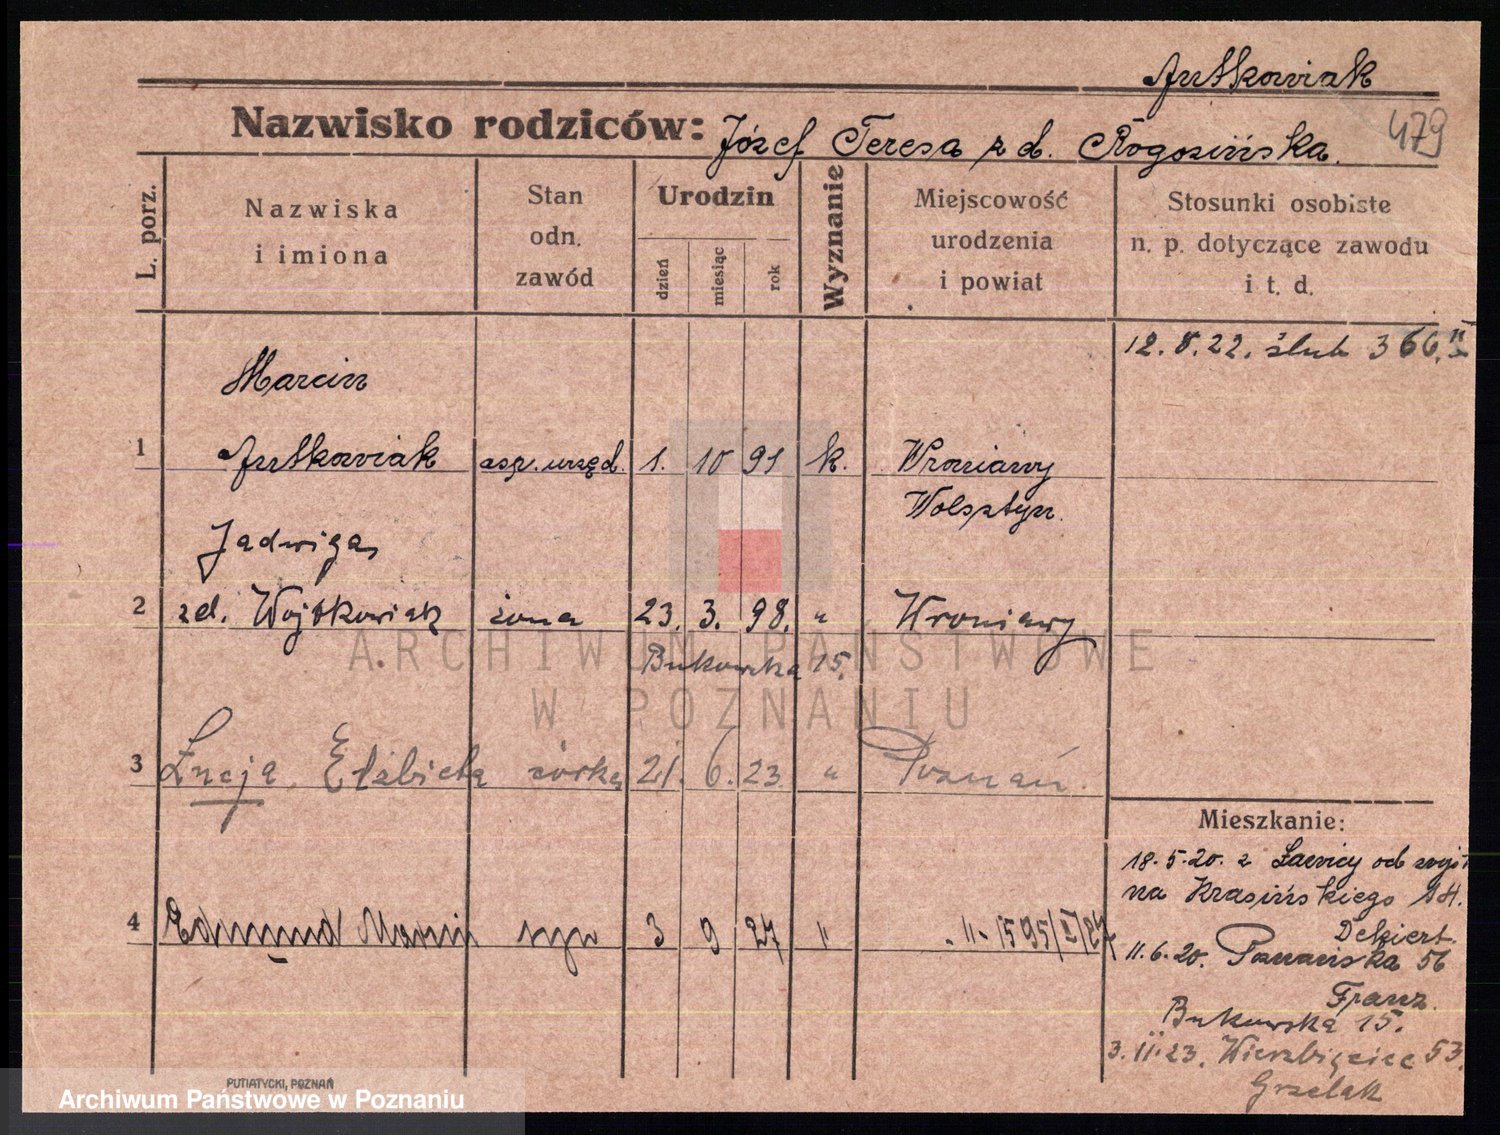 Jutkowiak
Nazwisko rodziców: Józef Teresa z d. Rogozińska.
479
L. porz.
Nazwiska
i imiona
Stan
odn.
zawód
Urodzin
dzień
miesiąc
rok
Wyznanie
Miejscowość
urodzenia
i powiat
Stosunki osobiste
n. p. dotyczące zawodu
i t. d.
12. 8. 22. ślub 366.
Marcin
1 Jutkowiak asp. urzęd. 1. 10 91 k. Wroniawy
Wolsztyn.
Jadwiga
2 zd. Wojtkowiak żona 23. 3. 98. " Wroniawy
Bukowska 15.
3 Łucja Elżbieta córka 21. 6. 23 " Poznań.
4 Edmund Marcin syn 3 9 27 " -"- 1595/II/27
Mieszkanie:
18.5.20. z Ławicy od
na Krasińskiego 14.
Dekiert.
11.6.20. Poznańska 56
Franz.
Bukowska 15.
3.II.23. Wierzbięcice 53.
Grzelak
PUTIATYCKI, POZNAŃ
ARCHIWUM PAŃSTWOWE
W POZNANIU
Archiwum Państwowe w Poznaniu